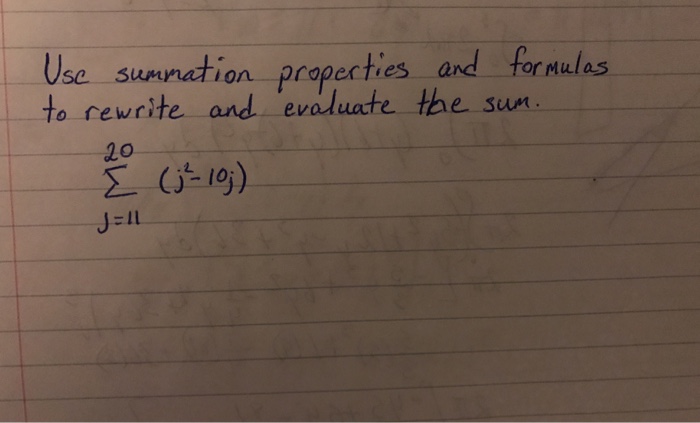 Use summation properties and formulas
to rewrite and evaluate the sum.
20
Σ (j²-10j)
J=11